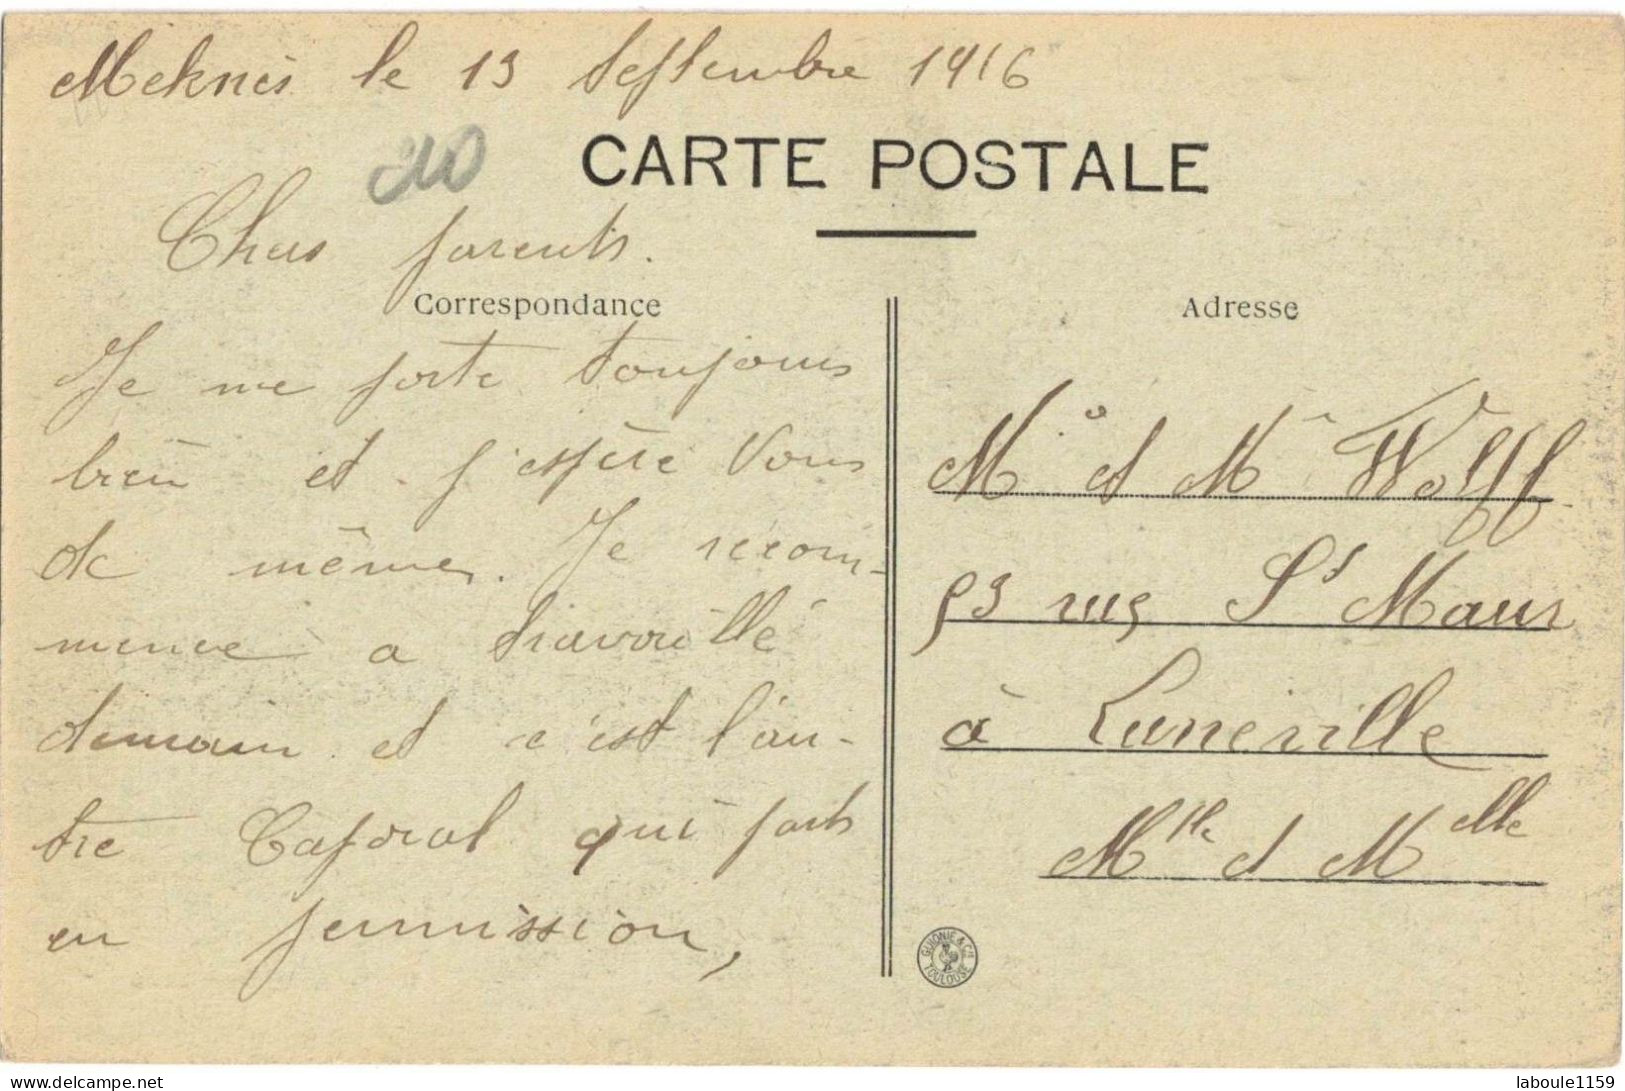 Meknès le 13 Septembre 1916
CARTE POSTALE
Chers parents.
Correspondance
Je me porte toujours
bien et j'espère Vous
de même. Je recom-
mence a travaillé
demain et c'est l'au-
tre Caporal qui part
en permission,
Adresse
Mr et Mme Wolff
53 rue St Maur
à Lunéville
Mlle et Melle
GUIONIE & Cie TOULOUSE
www.delcampe.net
laboule1159